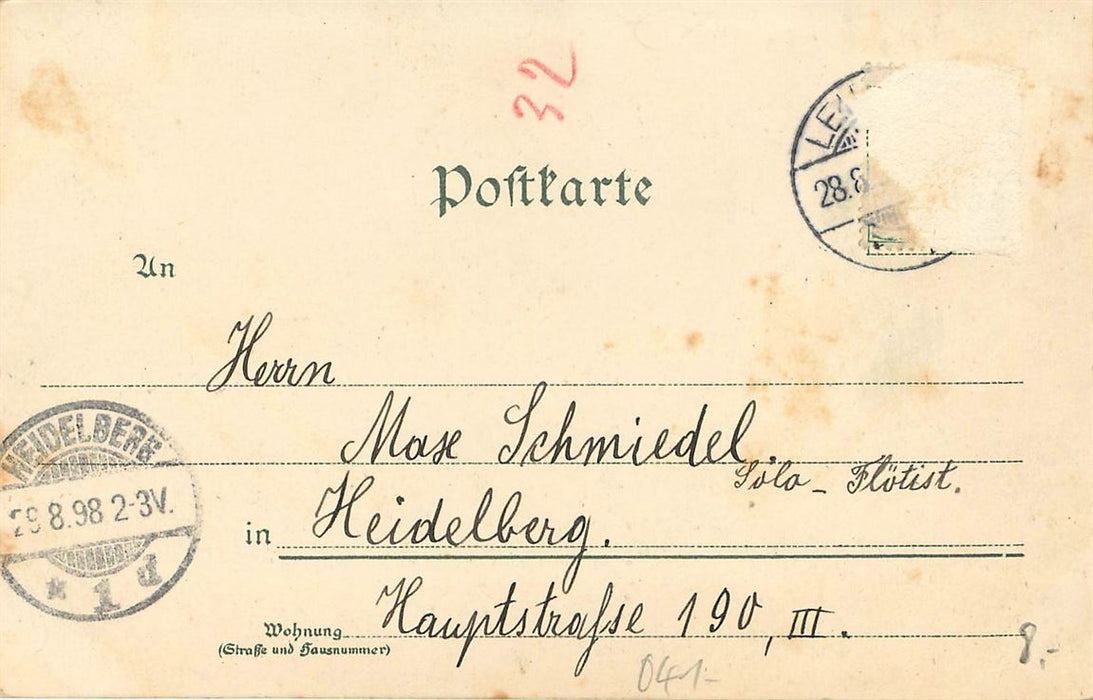 32
Postkarte
LE
28.8
An
Herrn
Max Schmiedel.
Solo - Flötist.
HEIDELBERG
29 8.98 2-3V.
* 1 d
in Heidelberg.
Hauptstraſse 190, III.
Wohnung
(Straße und Hausnummer)
041-
8.-